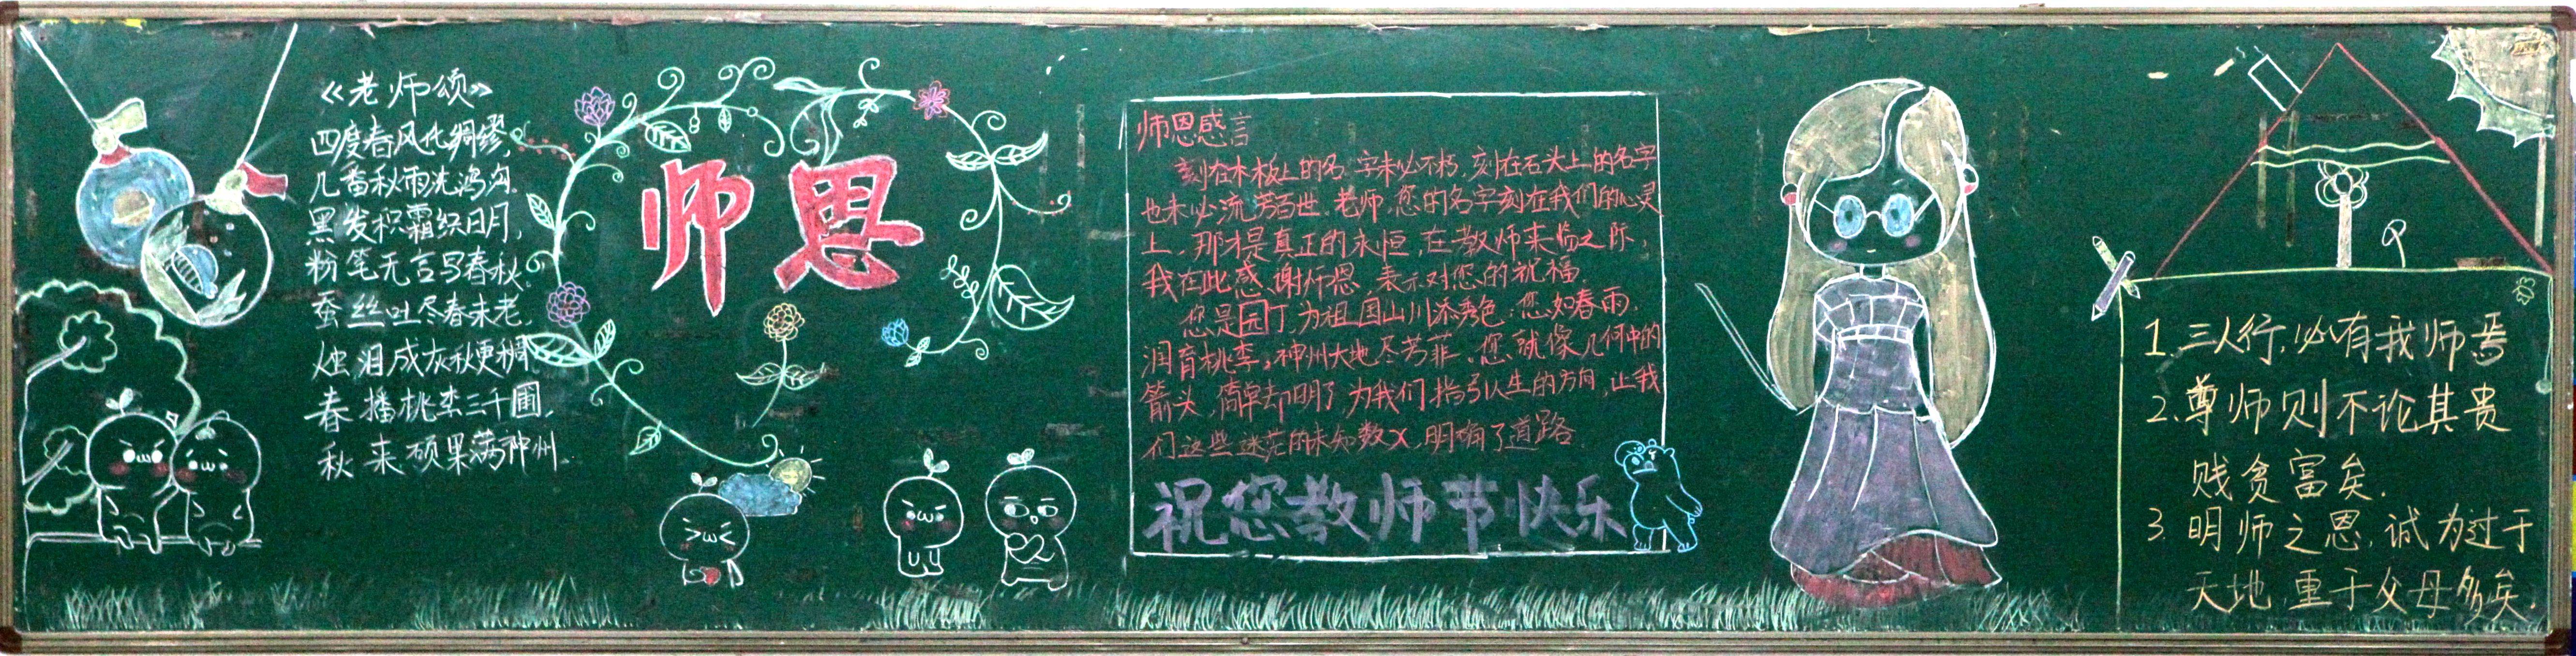 《老师颂》
四度春风化绸缪,
几番秋雨洗鸿沟.
黑发积霜织日月,
粉笔无言写春秋.
蚕丝吐尽春未老,
烛泪成灰秋更稠
春播桃李三千圃,
秋来硕果满神州.
师恩
师恩感言
刻在木板上的名字未必不朽,刻在石头上的名字
也未必流芳百世.老师,您的名字刻在我们的心灵
上,那才是真正的永恒,在教师来临之际,
我在此感谢师恩,表示对您的祝福.
您是园丁,为祖国山川添秀色;您如春雨,
润育桃李,神州大地尽芳菲。您就像几何中的
箭头,简单却明了,为我们指引人生的方向,让我
们这些迷茫的未知数X,明确了道路.
祝您教师节快乐
1.三人行,必有我师焉
2.尊师则不论其贵
贱贫富矣.
3.明师之恩,诚为过于
天地,重于父母多矣.